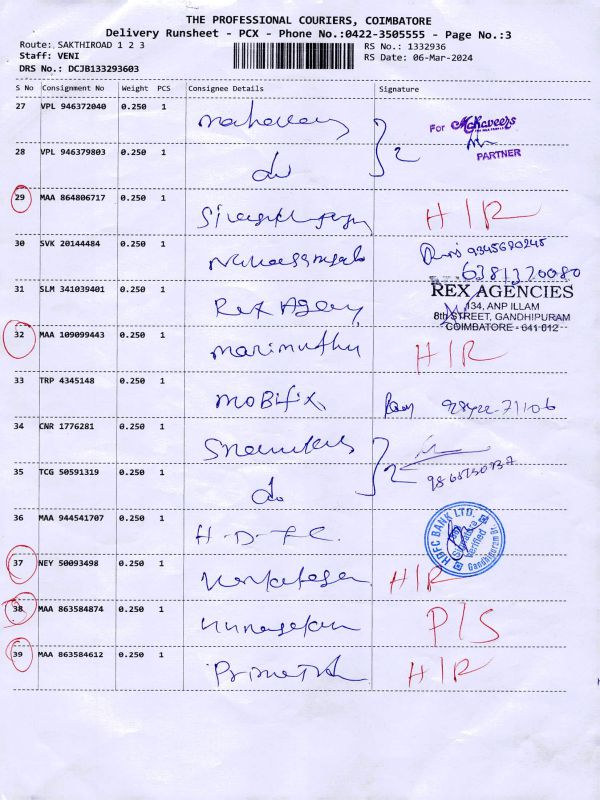 THE PROFESSIONAL COURIERS, COIMBATORE
Delivery Runsheet - PCX - Phone No.:0422-3505555 - Page No.:3
Route: SAKTHIROAD 1 2 3
Staff: VENI
DRS No.: DCJB133293603
RS No.: 1332936
RS Date: 06-Mar-2024
S No Consignment No Weight PCS Consignee Details Signature
27 VPL 946372040 0.250 1
For Mahaveers
PARTNER
28 VPL 946379803 0.250 1 do 2
29 MAA 864806717 0.250 1 H/R
30 SVK 20144484 0.250 1
6381320080
31 SLM 341039401 0.250 1 Rex Agency
REX AGENCIES
134, ANP ILLAM
8th STREET, GANDHIPURAM
COIMBATORE - 641 012
32 MAA 109099443 0.250 1 marimuthu H/R
33 TRP 4345148 0.250 1 moBifix 98422-71106
34 CNR 1776281 0.250 1
35 TCG 50591319 0.250 1 do 2
36 MAA 944541707 0.250 1 H.D.F.C.
HDFC BANK LTD.
Signature
Verified
Gandhipuram Br.
37 NEY 50093498 0.250 1 Venkatesan H/R
38 MAA 863584874 0.250 1 P/S
39 MAA 863584612 0.250 1 H/R